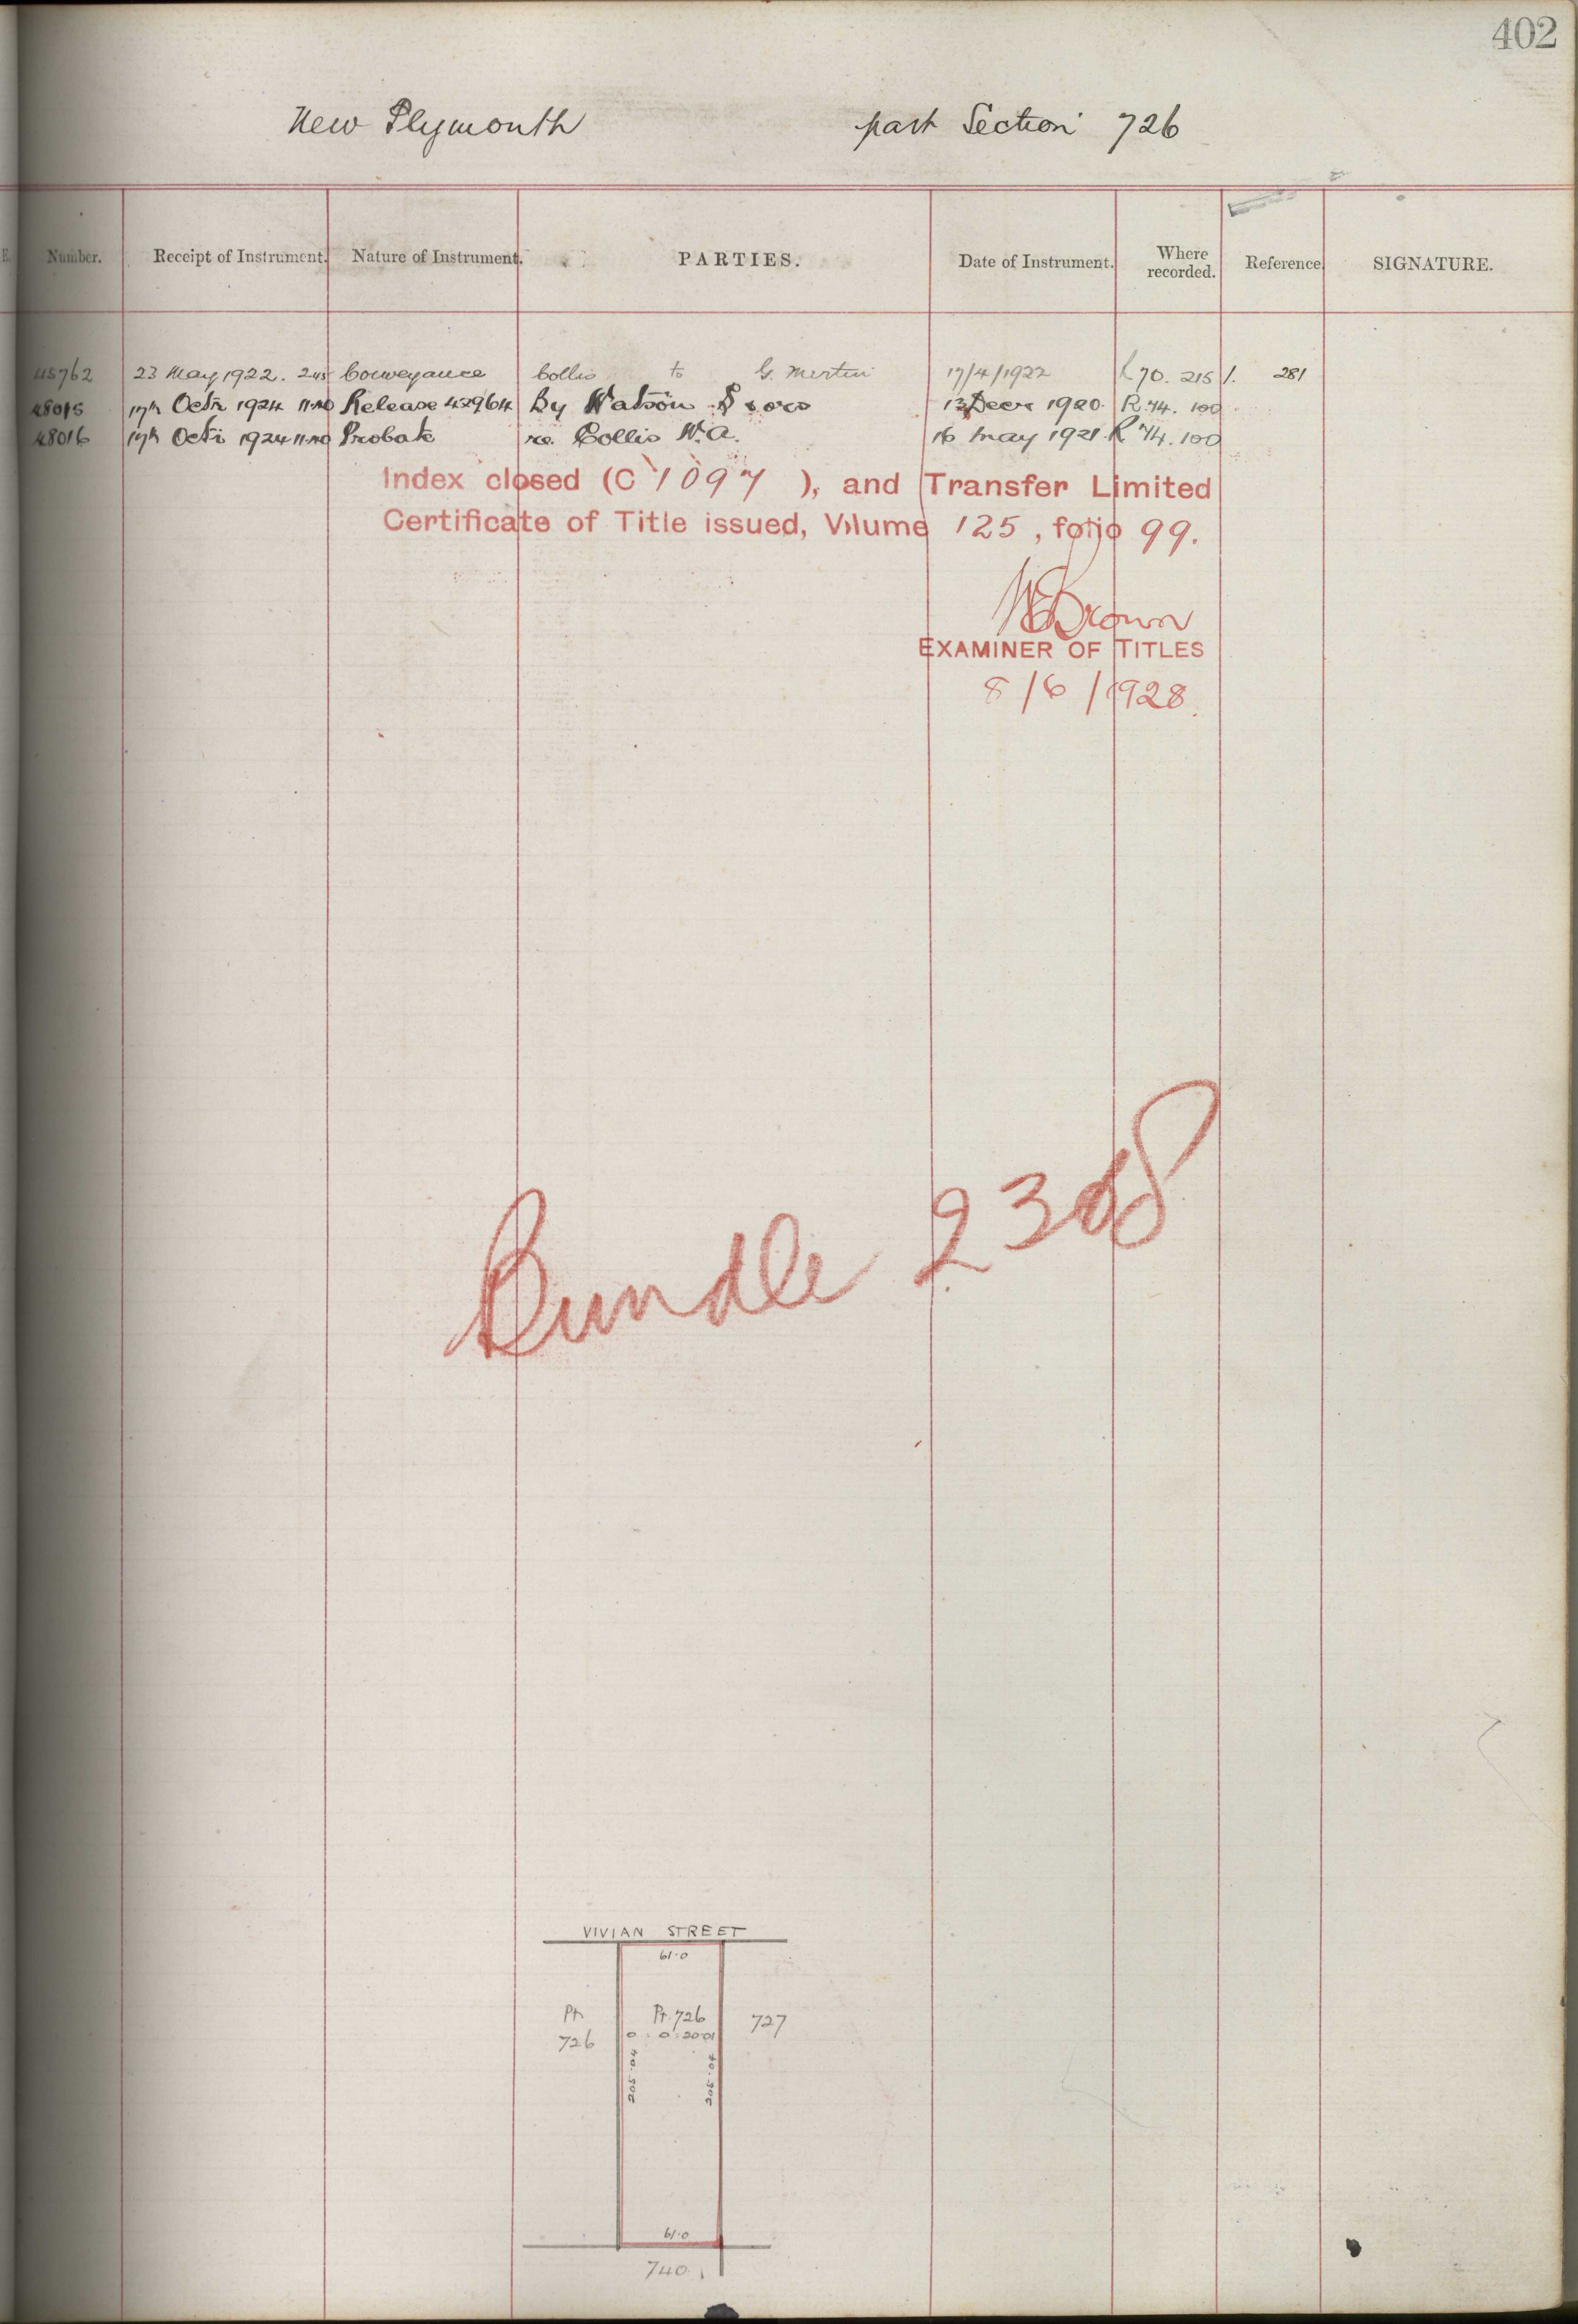 402
New Plymouth part Section 726
Number. Receipt of Instrument. Nature of Instrument. PARTIES. Date of Instrument. Where recorded. Reference SIGNATURE.
45762 23 May 1922. 2.45 Conveyance Collis to G. Mertin 17/4/1922 R 70. 215 /. 281
48015 17th Octr 1924 11.40 Release 429614 By Watson & ors 13 Decr 1920. R. 74. 100
48016 17th Octr 1924 11.40 Probate re. Collis W.A. 16 May 1921. R 74. 100
Index closed (C 1097 ), and Transfer Limited
Certificate of Title issued, Volume 125, folio 99.
Brown
EXAMINER OF TITLES
8/6/1928.
Bundle 2308
VIVIAN STREET
61·0
Pt. 726
Pt. 726
727
0 : 0 : 20·01
61·0
740